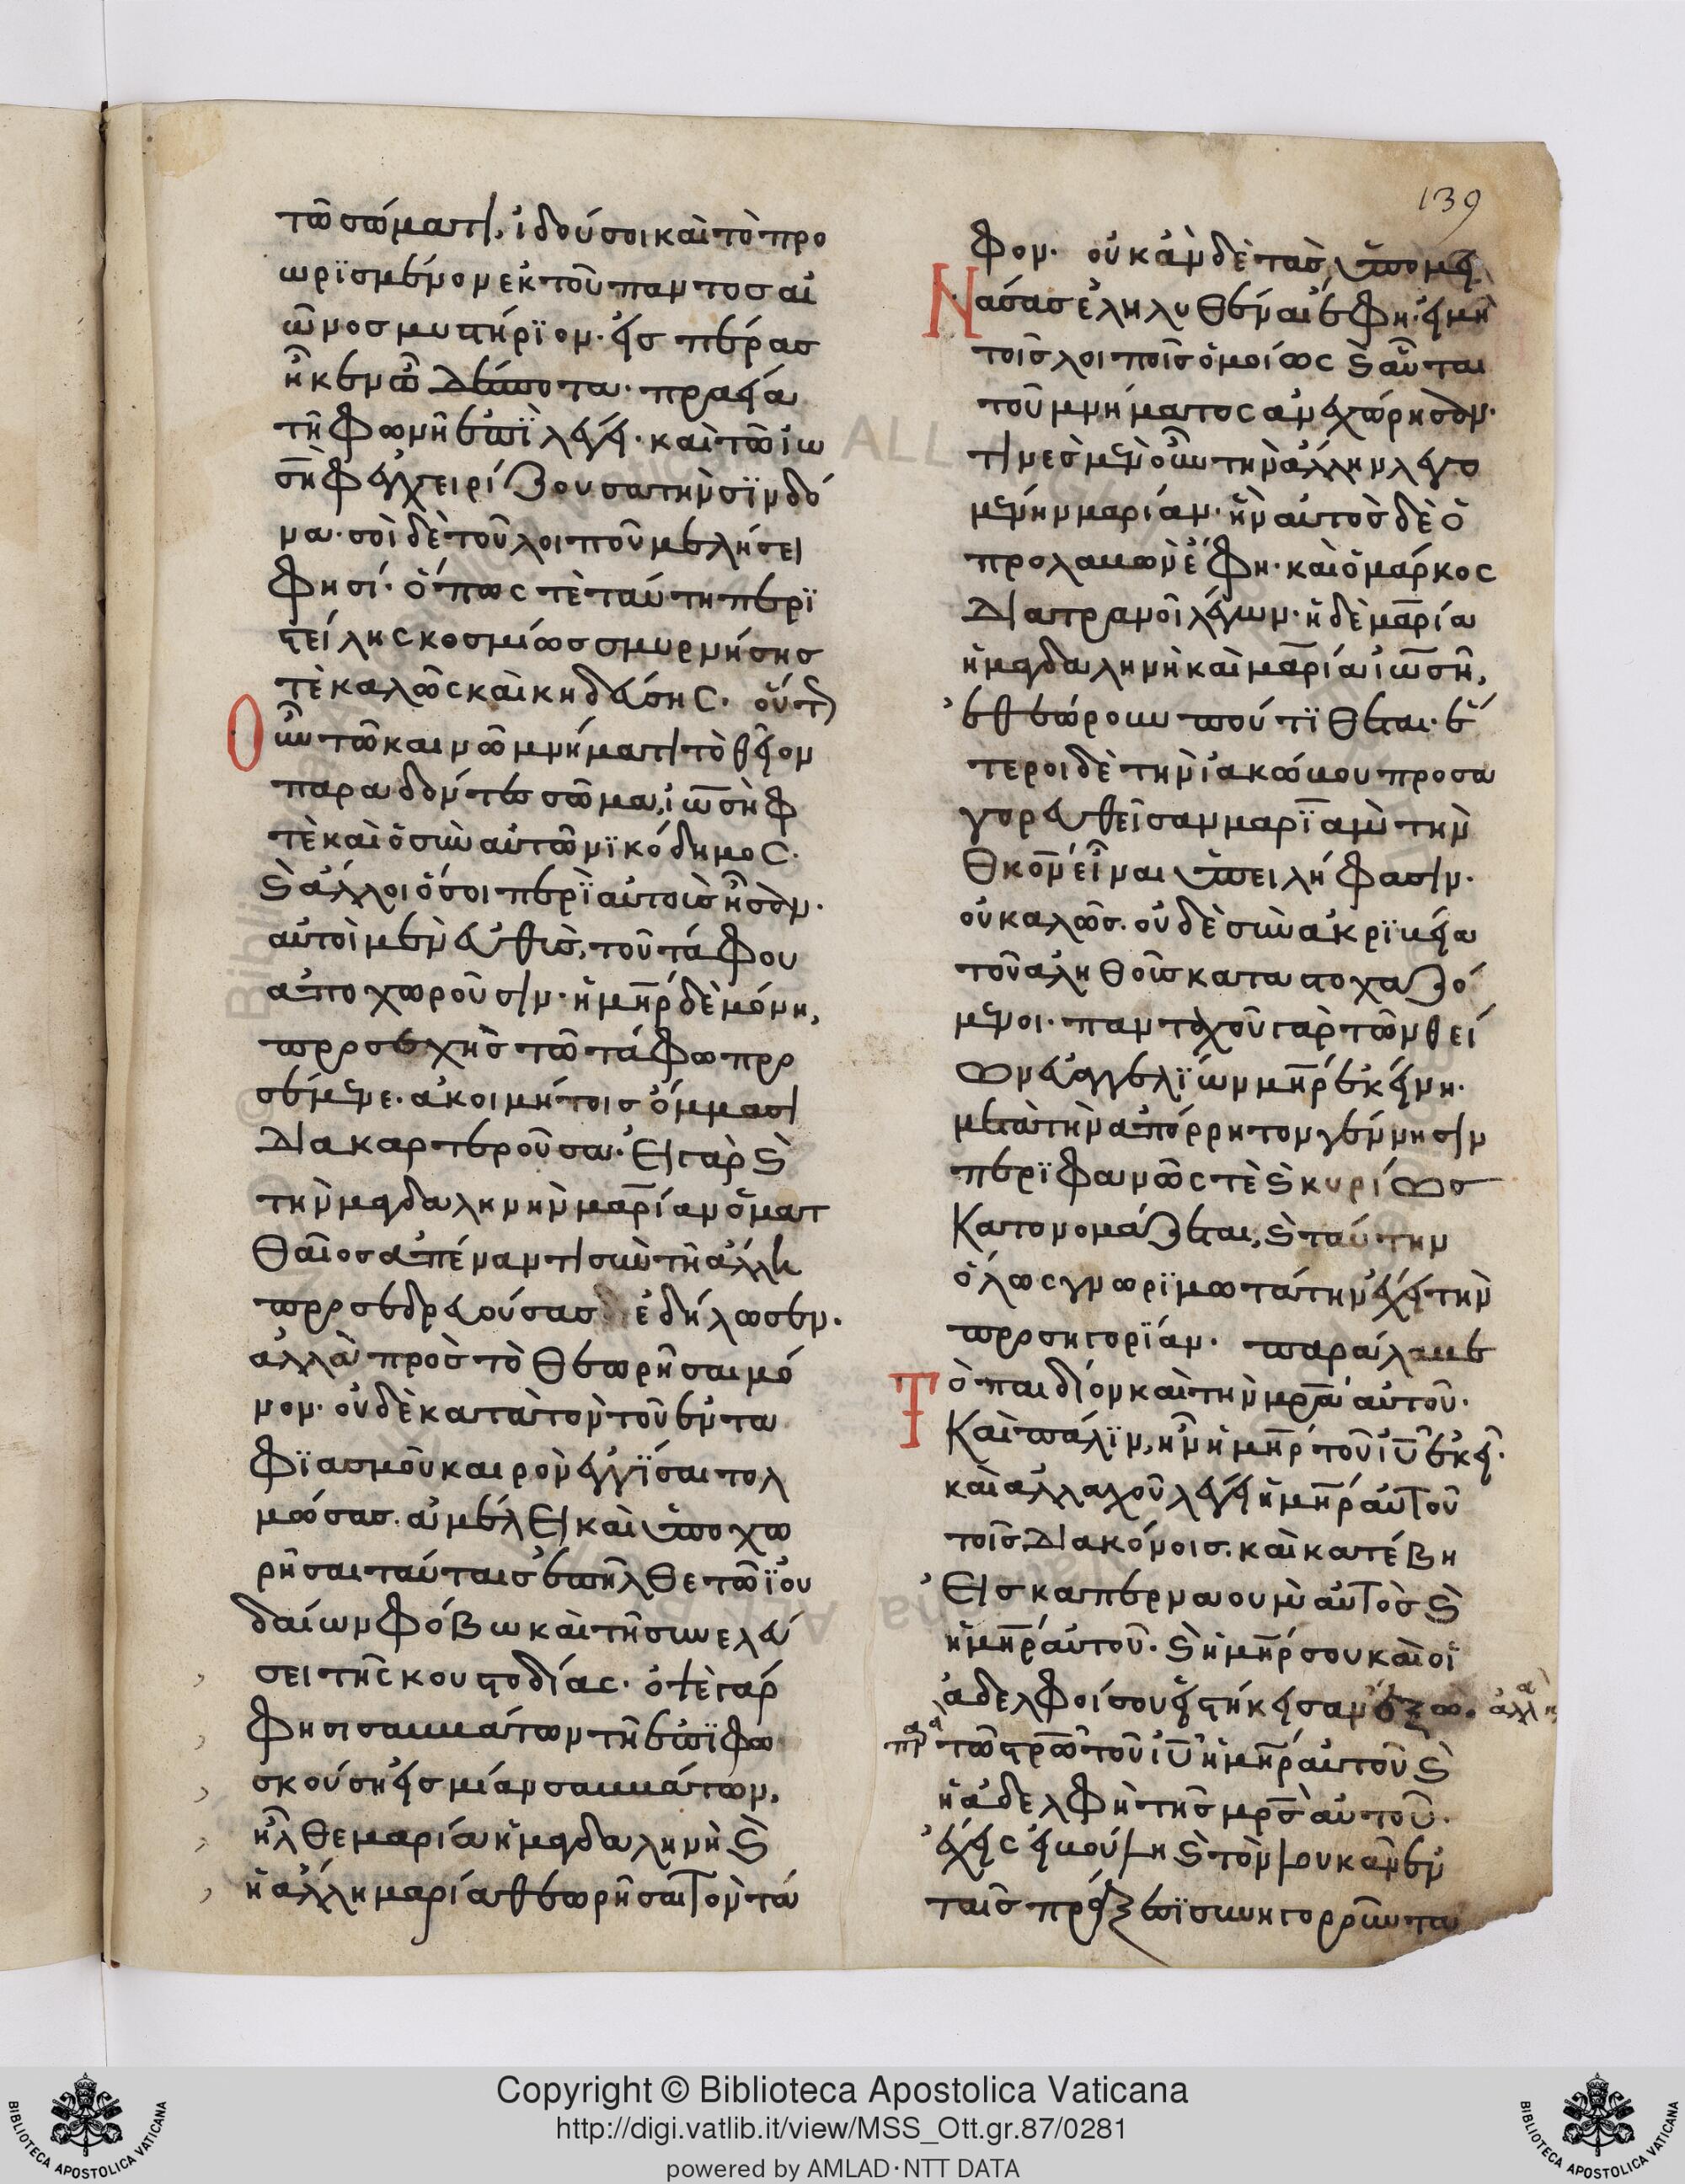 139
τῶ σώματι, ἰδού σοι καὶ τὸ προ
ωρϊσμένον ἐκ τοῦ παντοσ αἰ
ῶνοσ μυστήρϊον· εἰσ πέρασ
ἧκεν ὦ δέσποτα· πραεία
τῆ φωνῆ ἐπϊλέγει· καὶ τῶ ἰω
σὴφ ἐγχειρίζουσα τὴν σϊνδό
να· σοὶ δὲ τοῦ λοιποῦ μελήσει
φησί· ὅπως τὲ ταύτη περϊ
στείλης κοσμίωσ σμυρνήσησ
τὲ καλῶς καὶ κηδεύσης· οὕτω
Ο
ὖν τῶ καινῶ μνήματι τὸ θεῖον
παραδόντεσ σῶμα, ἰωσὴφ
τὲ καὶ ὁ σὺν αὐτῶ νϊκόδημος·
καὶ ἄλλοι ὅσοι περϊ αὐτοὺσ ἦσαν·
αὐτοὶ μὲν εὐθὺσ, τοῦ τάφου
ἀποχωροῦσιν· ἡ μηρ δὲ μόνη,
προσεχὴσ τῶ τάφω προ
σέμενε· ἀκοιμήτοισ ὄμμασι
διακαρτεροῦσα· Εἰ γὰρ καὶ
τὴν μαγδαληνὴν μαρίαν ὁ ματ
θαῖοσ ἀπέναντι σὺν τῆ ἄλλη
προσεδρευούσασ ἐδήλωσεν·
ἀλλὰ πρὸσ τὸ θεωρῆσαι μό
νον· οὐδὲ κατὰ τὸν τοῦ ἐντα
φϊασμοῦ καιρὸν ἐγγϊσαι τολ
μώσασ· ἀμέλει καὶ ὑποχω
ρῆσαι ταύταισ ἐπῆλθε τῶ ϊου
δαίων φόβω καὶ τῆ συνελεύ
σει τῆς κουστοδίας· ὀψὲ γάρ
φησι σαββάτων τῆ ἐπϊφω
σκούση εἰσ μίαν σαββάτων,
ἦλθε μαρία ἡ μαγδαληνὴ καὶ
ἡ ἄλλη μαρία θεωρῆσαι τὸν τά
φον· οὐκ ἂν δὲ τὰσ ὑπομεί
Ν
ασασ ἐληλυθέναι ἔφη· εἰ μὴ
τοῖσ λοιποῖσ ὁμοίως καὶ αὗται
τοῦ μνήματος ἀνεχώρησαν·
τινὲσ μὲν οὖν τὴν ἄλλην λεγο
μένην μαρίαν· ἣν αὐτὸσ δὲ ὁ
προλαβὼν ἔφη· καὶ ὁ μάρκος
διατρανοῖ λέγων· ἡ δὲ μαρία
ἡ μαγδαληνὴ καὶ μαρία ἰωσῆ,
ἐθεώρουν ποῦ τϊθεται· ἕ
τεροι δὲ τὴν ἰακώβου προσα
γορευθεῖσαν μαρϊαν τὴν
θκον εἶναι ὑπειλήφασιν·
οὐ καλῶσ· οὐδὲ σὺν ἀκρϊβεία
τοῦ ἀληθοῦσ καταστοχαζό
μενοι· πανταχοῦ γὰρ τῶν θεί
ων εὐαγγελϊων μηρ ἐκείνη·
μετὰ τὴν ἀπόρρητον γέννησιν
περϊφανῶς τὲ καὶ κυρίωσ
κατονομάζεται, καὶ ταύτην
ὅλως γνωρϊμωτάτην ἔχει τὴν
προσηγορϊαν· παράλαβε
Τ
ὸ παιδίον καὶ τὴν μρα αὐτοῦ·
καὶ πάλϊν, ἦν ἡ μηρ τοῦ ιυ ἐκεῖ·
καὶ ἀλλαχοῦ λέγει ἡ μηρ αὐτοῦ
τοῖσ διακόνοισ· καὶ κατέβη
Εἰσ καπερναουμ αὐτὸσ καὶ
ἡ μηρ αὐτοῦ· καὶ ἡ μηρ σου καὶ οἱ
ἀδελφοί σου ἑστήκεισαν ἔξω·
τῶ στρω τοῦ ιυ ἡ μηρ αὐτοῦ καὶ
ἡ ἀδελφὴ τῆσ μρσ αὐτοῦ·
ἔχεις εἰ βούλη καὶ τὸν λουκᾶν ἐν
ταῖσ πράξεσϊ συνηγοροῦντα
Copyright © Biblioteca Apostolica Vaticana
http://digi.vatlib.it/view/MSS_Ott.gr.87/0281
powered by AMLAD·NTT DATA
BIBLIOTECA APOSTOLICA VATICANA
BIBLIOTECA APOSTOLICA VATICANA